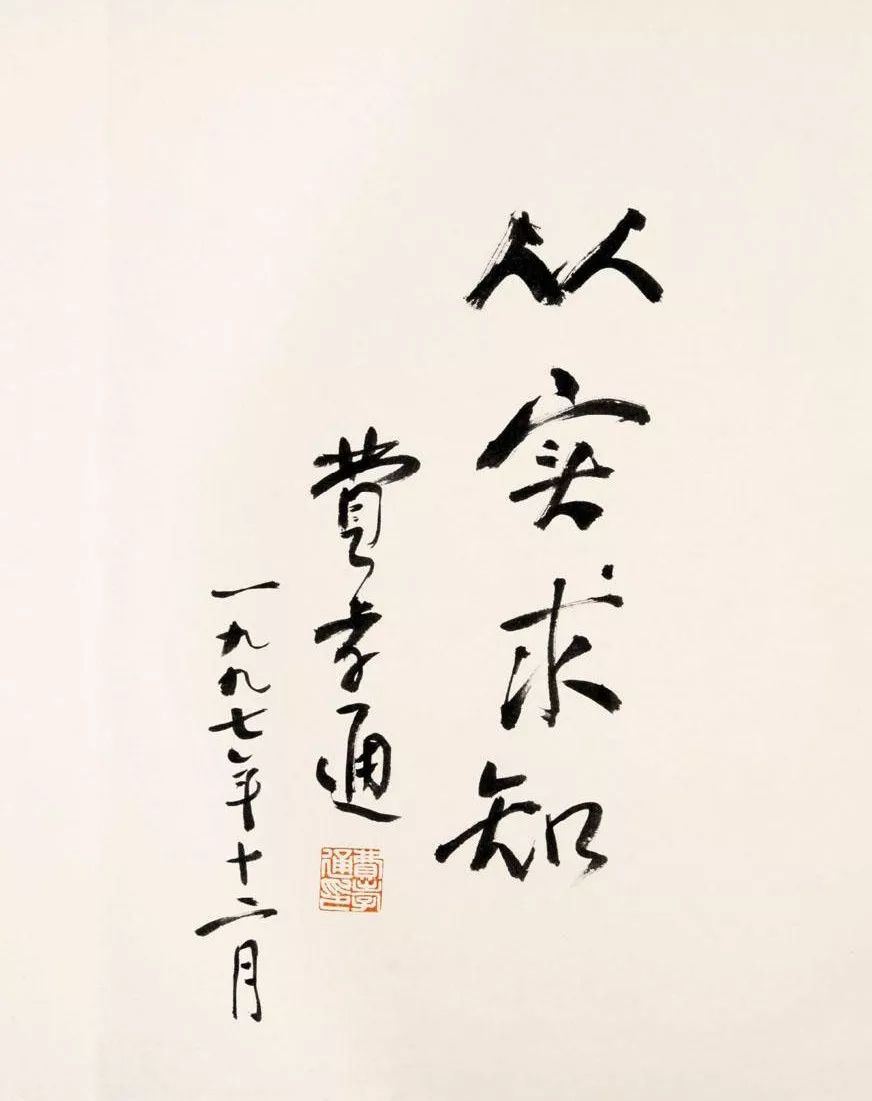 从实求知
費孝通
一九九七年十二月
費孝通印